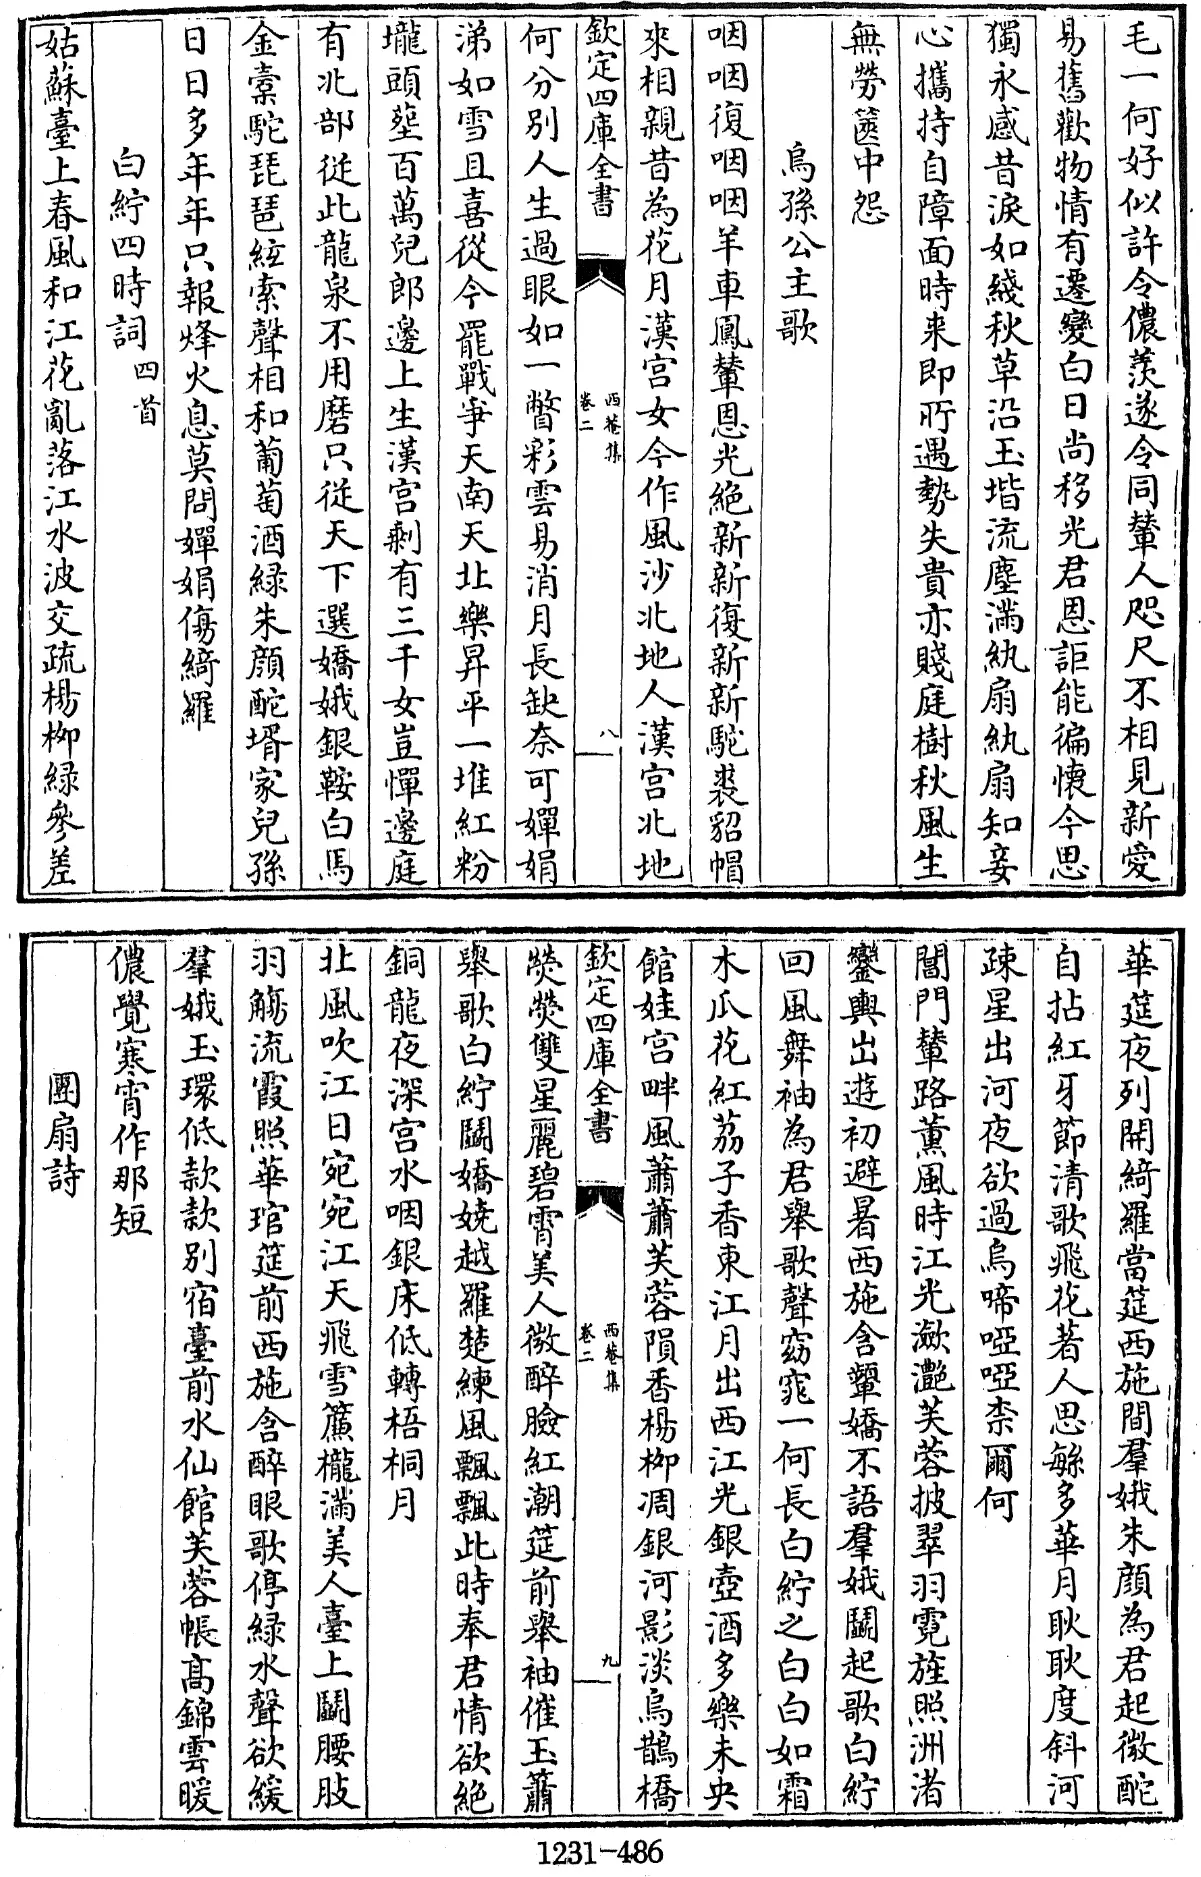 毛一何好似許令儂羨遂令同輦人咫尺不相見新愛
易舊歡物情有遷變白日尚移光君恩詎能徧懷今思
獨永感昔淚如綫秋草沿玉堦流塵滿紈扇紈扇知妾
心攜持自障面時来即所遇勢失貴亦賤庭樹秋風生
無勞篋中怨
烏孫公主歌
咽咽復咽咽羊車鳳輦恩光絶新新復新新駝裘貂帽
來相親昔為花月漢宫女今作風沙北地人漢宫北地
欽定四庫全書
西菴集
卷二
八
何分别人生過眼如一瞥彩雲易消月長缺奈可嬋娟
涕如雪且喜從今罷戰爭天南天北樂昇平一堆紅粉
壠頭塟百萬兒郎邊上生漢宫剩有三千女豈憚邊庭
有北部從此龍泉不用磨只從天下選嬌娥銀鞍白馬
金槖駝琵琶絃索聲相和葡萄酒緑朱顔酡壻家兒孫
日日多年年只報烽火息莫問嬋娟傷綺羅
白紵四時詞四首
姑蘇臺上春風和江花亂落江水波交疏楊柳緑參差
華筵夜列開綺羅當筵西施間羣娥朱顔為君起微酡
自拈紅牙節清歌飛花著人思緜多華月耿耿度斜河
疎星出河夜欲過烏啼啞啞柰爾何
閶門輦路薰風時江光瀲灧芙蓉披翠羽霓旌照洲渚
鑾輿出遊初避暑西施含顰嬌不語羣娥鬭起歌白紵
回風舞袖為君舉歌聲窈窕一何長白紵之白白如霜
木瓜花紅荔子香東江月出西江光銀壺酒多樂未央
館娃宫畔風蕭蕭芙蓉隕香楊柳凋銀河影淡烏鵲橋
欽定四庫全書
西菴集
卷二
九
熒熒雙星麗碧霄美人微醉臉紅潮筵前舉袖催玉簫
舉歌白紵鬭嬌嬈越羅楚練風飄飄此時奉君情欲絶
銅龍夜深宫水咽銀床低轉梧桐月
北風吹江日宛宛江天飛雪簾櫳滿美人臺上鬭腰肢
羽觴流霞照華琯筵前西施含醉眼歌停緑水聲欲緩
羣娥玉環低款款别宿臺前水仙館芙蓉帳髙錦雲暖
儂覺寒宵作那短
團扇詩
1231-486